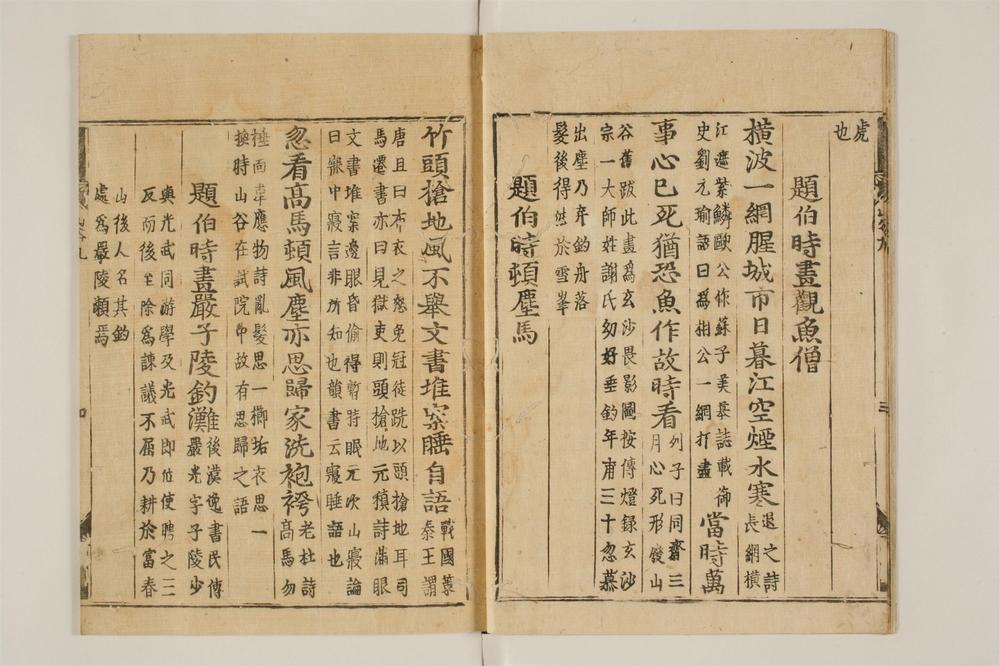 虎
也
題伯時畫觀魚僧
橫波一網腥城市日暮江空煙水寒
退之詩
長網橫
江遮紫鱗歐公作蘇子美墓誌載御
史劉元瑜語曰爲相公一網打盡
當時萬
事心已死猶恐魚作故時看
列子曰同齋三
月心死形廢山
谷舊跋此畫爲玄沙畏影圖按傳燈録玄沙
宗一大師姓謝氏幼好垂釣年甫三十忽慕
出塵乃弃釣舟落
髮後得然於雪峯
題伯時頓塵馬
竹頭搶地風不舉文書堆案睡自語
戰國策
秦王謂
唐且曰布衣之怒免冠徒跣以頭搶地耳司
馬遷書亦曰見獄吏則頭搶地元稹詩滿眼
文書堆案邊眼昏偷得暫時眠元次山寱論
曰寐中寱言非所知也韻書云寱睡語也
忽看高馬頓風塵亦思歸家洗袍袴
老杜詩
高馬勿
捶面韋應物詩亂髮思一櫛垢衣思一
換時山谷在試院中故有思歸之語
題伯時畫嚴子陵釣灘
後漢逸書民傳
嚴光字子陵少
與光武同游學及光武即位使聘之三
反而後至除爲諫議不屈乃耕於富春
山後人名其釣
處爲嚴陵瀨焉